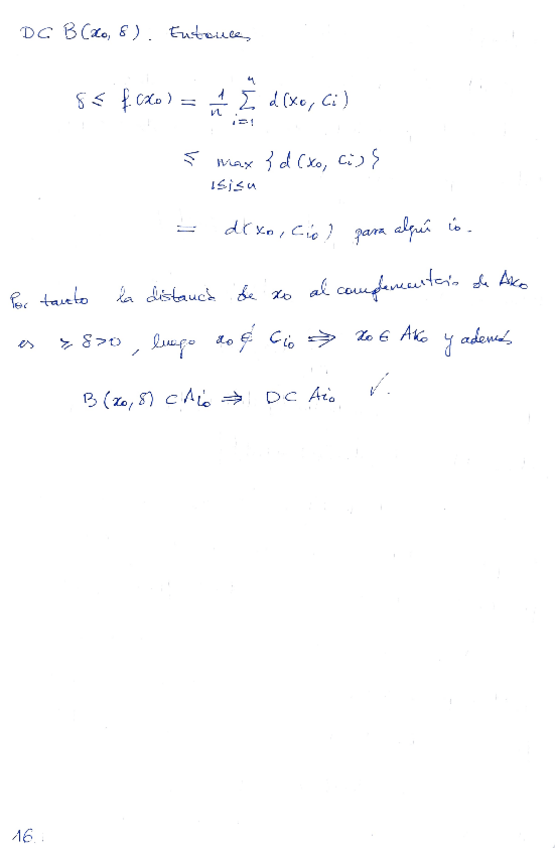 D ⊂ B(x₀, δ). Entonces
n
δ ≤ f(x₀) = 1/n Σ d(x₀, Ci)
i=1
≤ max { d(x₀, Ci) }
1≤i≤n
= d(x₀, Cio) para algún io.
Por tanto la distancia de x₀ al complementario de Ako
es ≥ δ>0, luego x₀ ∉ Cio ⇒ x₀ ∈ Ako y además
B(x₀, δ) ⊂ Aio ⇒ D ⊂ Aio ✓.
16.